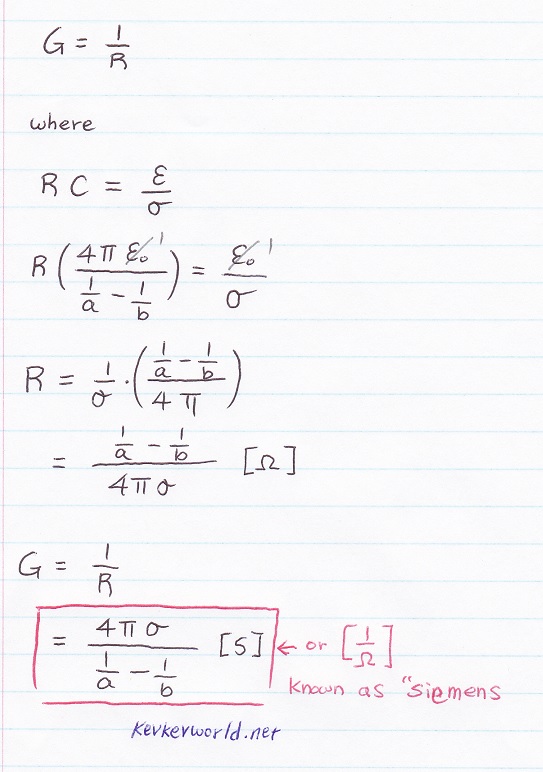 G = 1/R
where
R C = ε/σ
R ( 4π ε₀ ¹ / (1/a - 1/b) ) = ε₀ ¹ / σ
R = 1/σ · ( (1/a - 1/b) / 4π )
= (1/a - 1/b) / 4πσ [Ω]
G = 1/R
= 4πσ / (1/a - 1/b) [S] ← or [1/Ω]
known as "siemens
kevkevworld.net